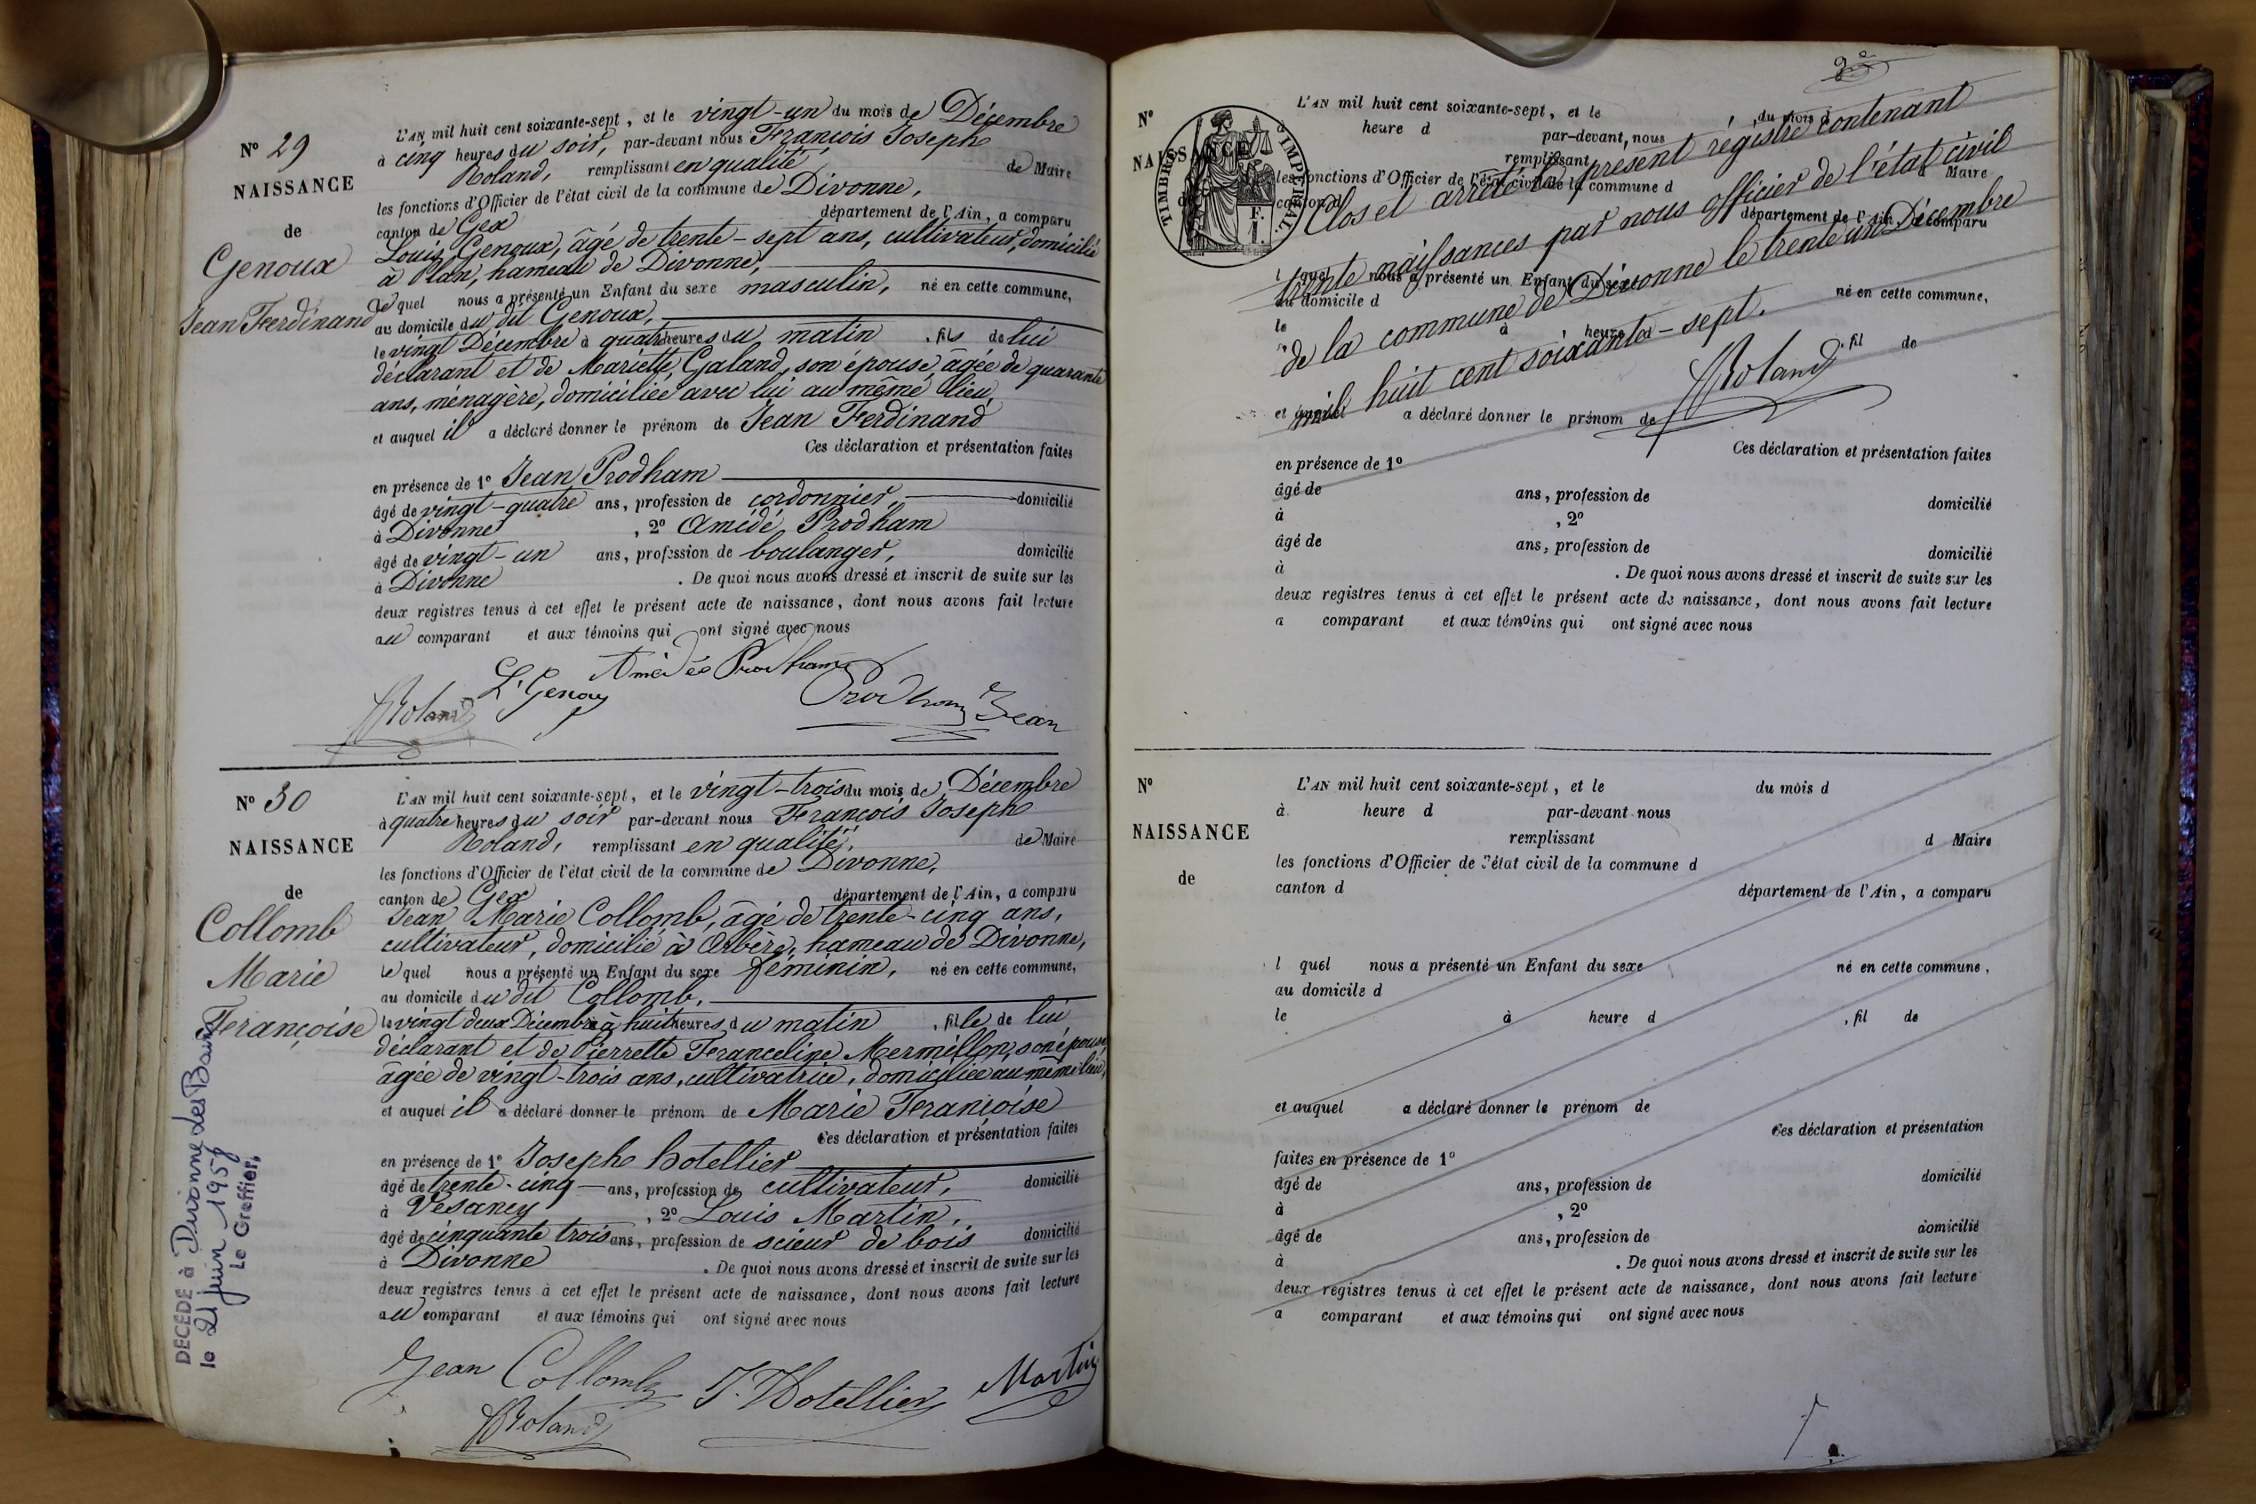 N° 29
NAISSANCE
de
Genoux
Jean Ferdinand
L'AN mil huit cent soixante-sept, et le vingt-un du mois de Décembre
à cinq heures du soir, par-devant nous François Joseph
Roland, remplissant en qualité de Maire
les fonctions d'Officier de l'état civil de la commune de Divonne,
canton de Gex département de l'Ain, a comparu
Louis Genoux, âgé de trente-sept ans, cultivateur, domicilié
à Plan, hameau de Divonne,
le quel nous a présenté un Enfant du sexe masculin, né en cette commune,
au domicile du dit Genoux,
le vingt Décembre à quatre heures du matin, fils de lui
déclarant et de Mariette Galand, son épouse, âgée de quarante
ans, ménagère, domiciliée avec lui au même lieu,
et auquel il a déclaré donner le prénom de Jean Ferdinand
Ces déclaration et présentation faites
en présence de 1° Jean Prodham
âgé de vingt-quatre ans, profession de cordonnier, domicilié
à Divonne, 2° Amédé Prodham
âgé de vingt-un ans, profession de boulanger, domicilié
à Divonne. De quoi nous avons dressé et inscrit de suite sur les
deux registres tenus à cet effet le présent acte de naissance, dont nous avons fait lecture
au comparant et aux témoins qui ont signé avec nous
Amédée Prodham
L. Genoux
Roland
Prodham Jean
N° 30
NAISSANCE
de
Collomb
Marie
Françoise
DÉCÉDÉ à Divonne les Bains
le 21 juin 195
Le Greffier,
L'AN mil huit cent soixante-sept, et le vingt-trois du mois de Décembre
à quatre heures du soir par-devant nous François Joseph
Roland, remplissant en qualité, de Maire
les fonctions d'Officier de l'état civil de la commune de Divonne,
canton de Gex département de l'Ain, a comparu
Jean Marie Collomb, âgé de trente-cinq ans,
cultivateur, domicilié à Arbère, hameau de Divonne,
le quel nous a présenté un Enfant du sexe féminin, né en cette commune,
au domicile du dit Collomb,
le vingt deux Décembre à huit heures du matin, fille de lui
déclarant et de Pierrette Franceline Mermillon, son épouse
âgée de vingt-trois ans, cultivatrice, domiciliée au même lieu,
et auquel il a déclaré donner le prénom de Marie Françoise
Ces déclaration et présentation faites
en présence de 1° Joseph hotellier
âgé de trente-cinq ans, profession de cultivateur, domicilié
à Vésancy, 2° Louis Martin,
âgé de cinquante trois ans, profession de scieur de bois domicilié
à Divonne. De quoi nous avons dressé et inscrit de suite sur les
deux registres tenus à cet effet le présent acte de naissance, dont nous avons fait lecture
au comparant et aux témoins qui ont signé avec nous
Jean Collomb J. Hotellier Martin
Roland
N°
NAISSANCE
TIMBRE IMPÉRIAL
L'AN mil huit cent soixante-sept, et le du mois d
heure d par-devant nous
remplissant Maire
les fonctions d'Officier de l'état civil de la commune d
canton d département de l'Ain, a comparu
l quel nous a présenté un Enfant du sexe né en cette commune,
au domicile d
le à heure d, fil de
et auquel a déclaré donner le prénom de
Clos et arrêté le présent registre contenant
trente naissances par nous officier de l'état civil
de la commune de Divonne le trente un Décembre
mil huit cent soixante-sept.
Roland
Ces déclaration et présentation faites
en présence de 1°
âgé de ans, profession de domicilié
à, 2°
âgé de ans, profession de domicilié
à. De quoi nous avons dressé et inscrit de suite sur les
deux registres tenus à cet effet le présent acte de naissance, dont nous avons fait lecture
a comparant et aux témoins qui ont signé avec nous
N°
NAISSANCE
de
L'AN mil huit cent soixante-sept, et le du mois d
à heure d par-devant nous
remplissant d Maire
les fonctions d'Officier de l'état civil de la commune d
canton d département de l'Ain, a comparu
l quel nous a présenté un Enfant du sexe né en cette commune,
au domicile d
le à heure d, fil de
et auquel a déclaré donner le prénom de
Ces déclaration et présentation
faites en présence de 1°
âgé de ans, profession de domicilié
à, 2°
âgé de ans, profession de domicilié
à. De quoi nous avons dressé et inscrit de suite sur les
deux registres tenus à cet effet le présent acte de naissance, dont nous avons fait lecture
a comparant et aux témoins qui ont signé avec nous